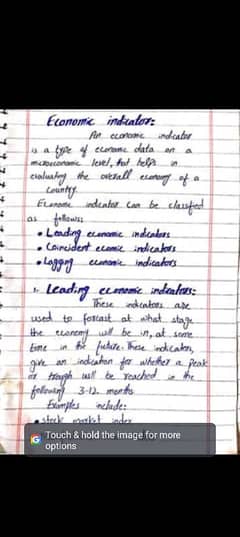 Economic indicators:
An economic indicator
is a type of economic data on a
macroeconomic level, that helps in
evaluating the overall economy of a
Country.
Economic indicator can be classified
as follows:
• Leading economic indicators
• Coincident ecomic indicators
• Lagging economic indicators
1. Leading economic indicators:
These indicators are
used to forcast at what stage
the economy will be in, at some
time in the future. These indicators,
give an indication for whether a peak
or trough will be reached in the
following 3-12 months.
Examples include:
• stock market index
Touch & hold the image for more
options